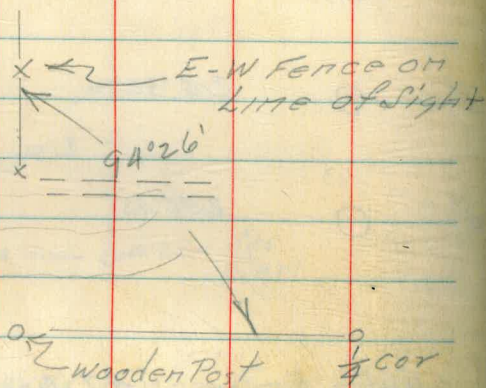 E-W Fence on
Line of Sight
94°26'
Wooden Post
1/4 cor